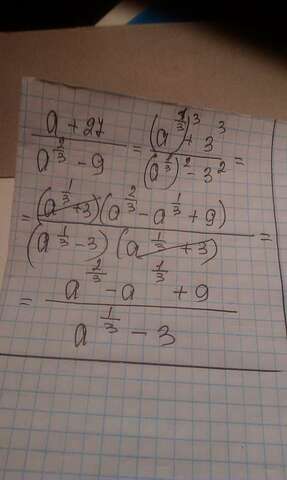 (a + 27)/(a^(2/3) - 9) = ((a^(1/3))^3 + 3^3)/((a^(1/3))^2 - 3^2) =
= ((a^(1/3) + 3)(a^(2/3) - a^(1/3) + 9))/((a^(1/3) - 3)(a^(1/3) + 3)) =
= (a^(2/3) - a^(1/3) + 9)/(a^(1/3) - 3)